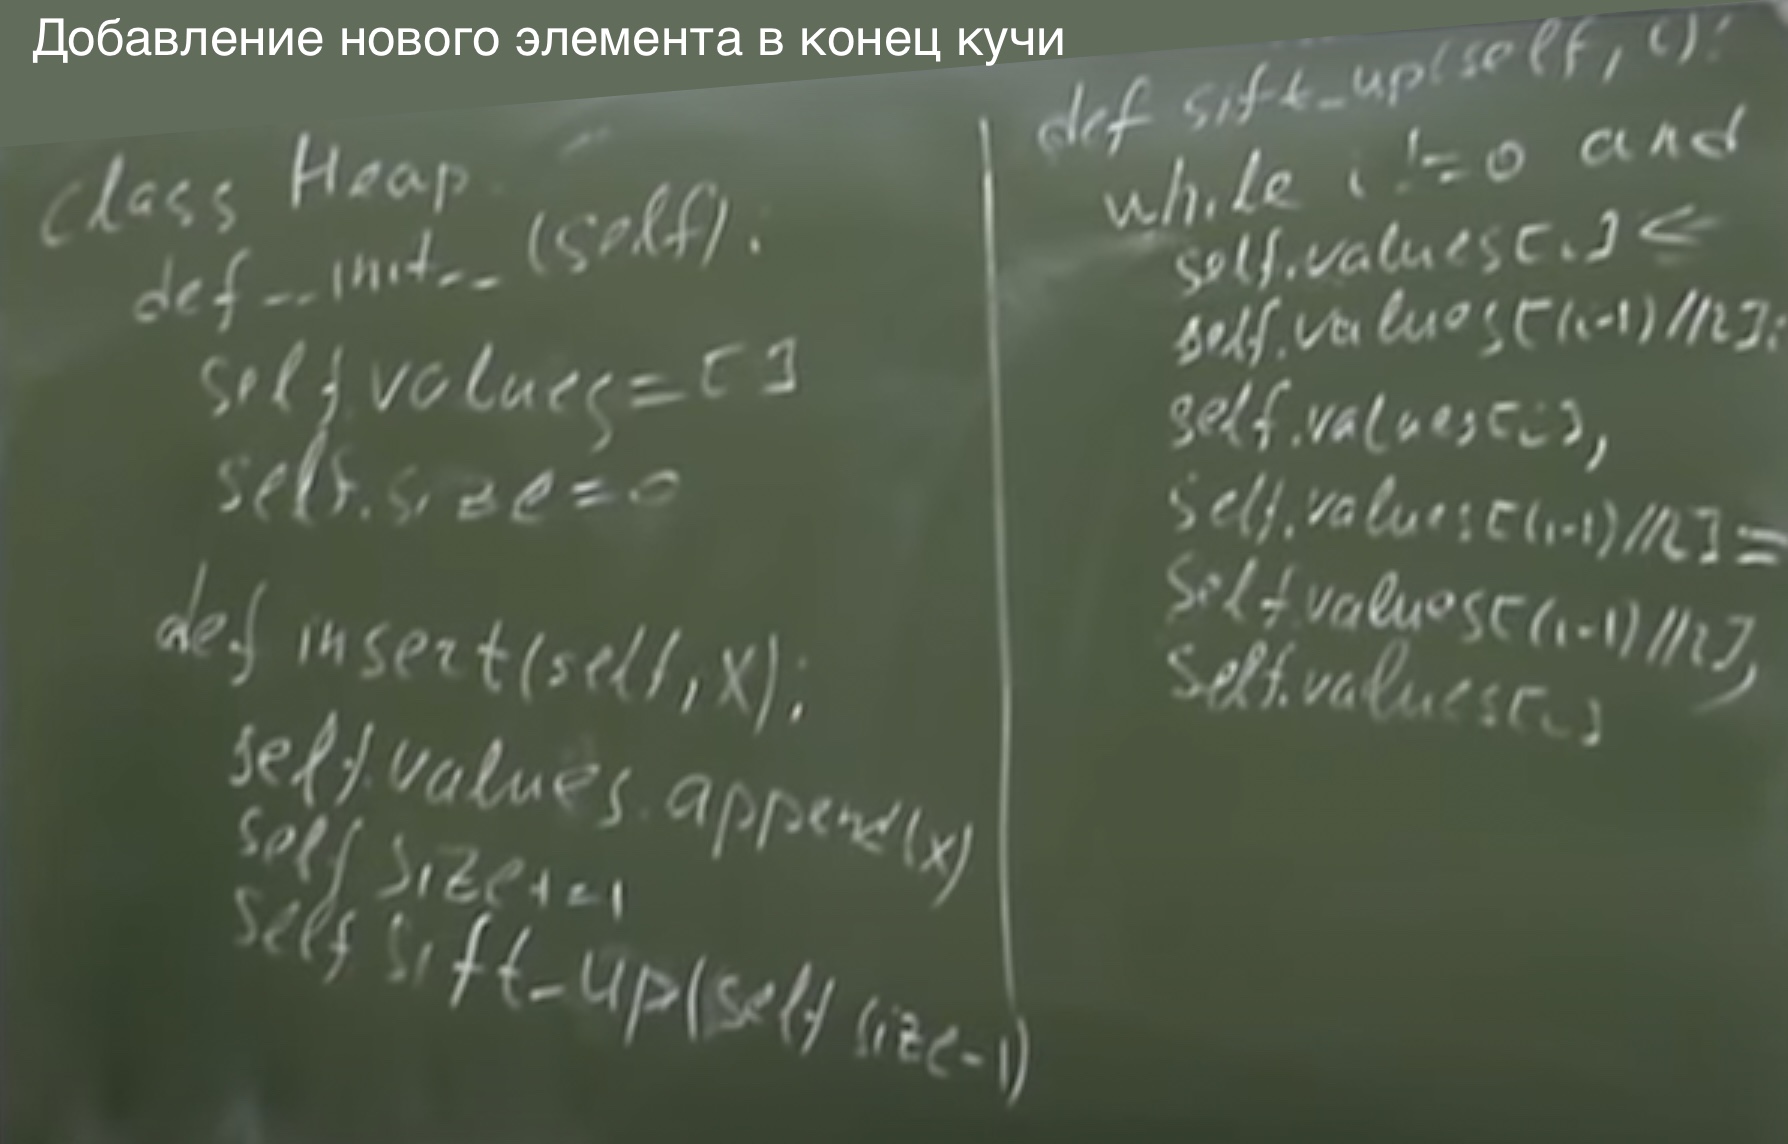 Добавление нового элемента в конец кучи
class Heap
def __init__ (self):
self.values=[]
self.size=0
def insert(self,x):
self.values.append(x)
self size+=1
self sift_up(self size-1)
def sift_up(self, i):
while i !=0 and
self.values[i] <
self.values[(i-1)//2]:
self.values[i],
self.values[(i-1)//2]=
self.values[(i-1)//2],
self.values[i]